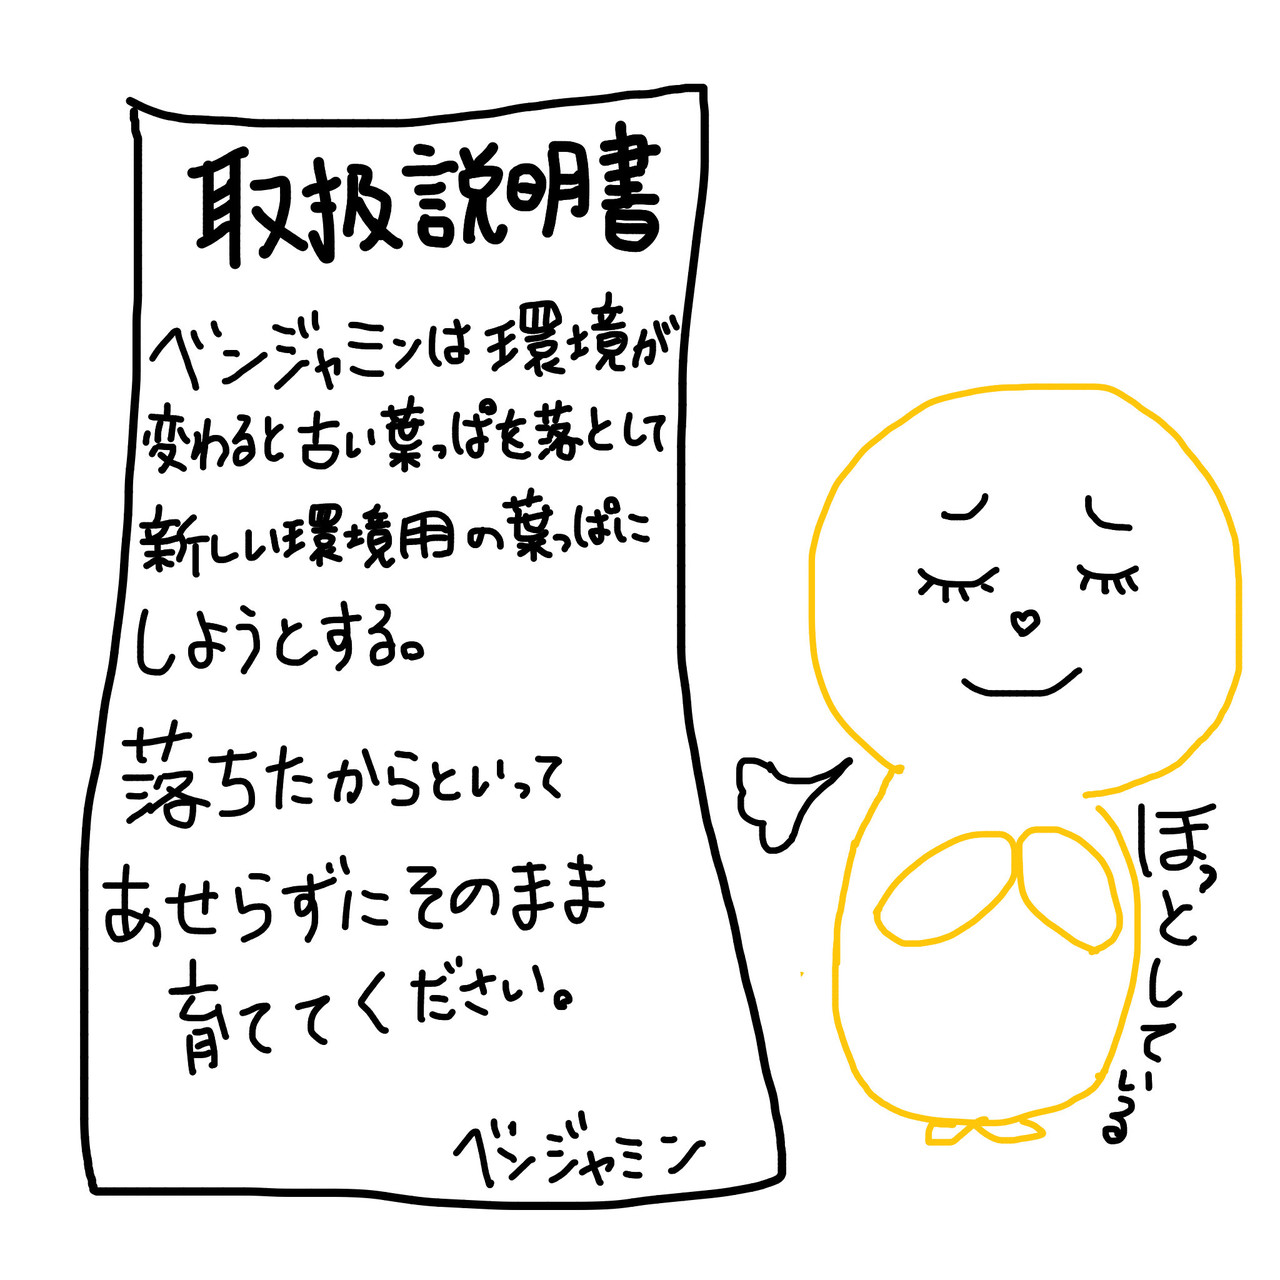 取扱説明書
ベンジャミンは環境が
変わると古い葉っぱを落として
新しい環境用の葉っぱに
しようとする。
落ちたからといって
あせらずにそのまま
育ててください。
ベンジャミン
ほっとしている